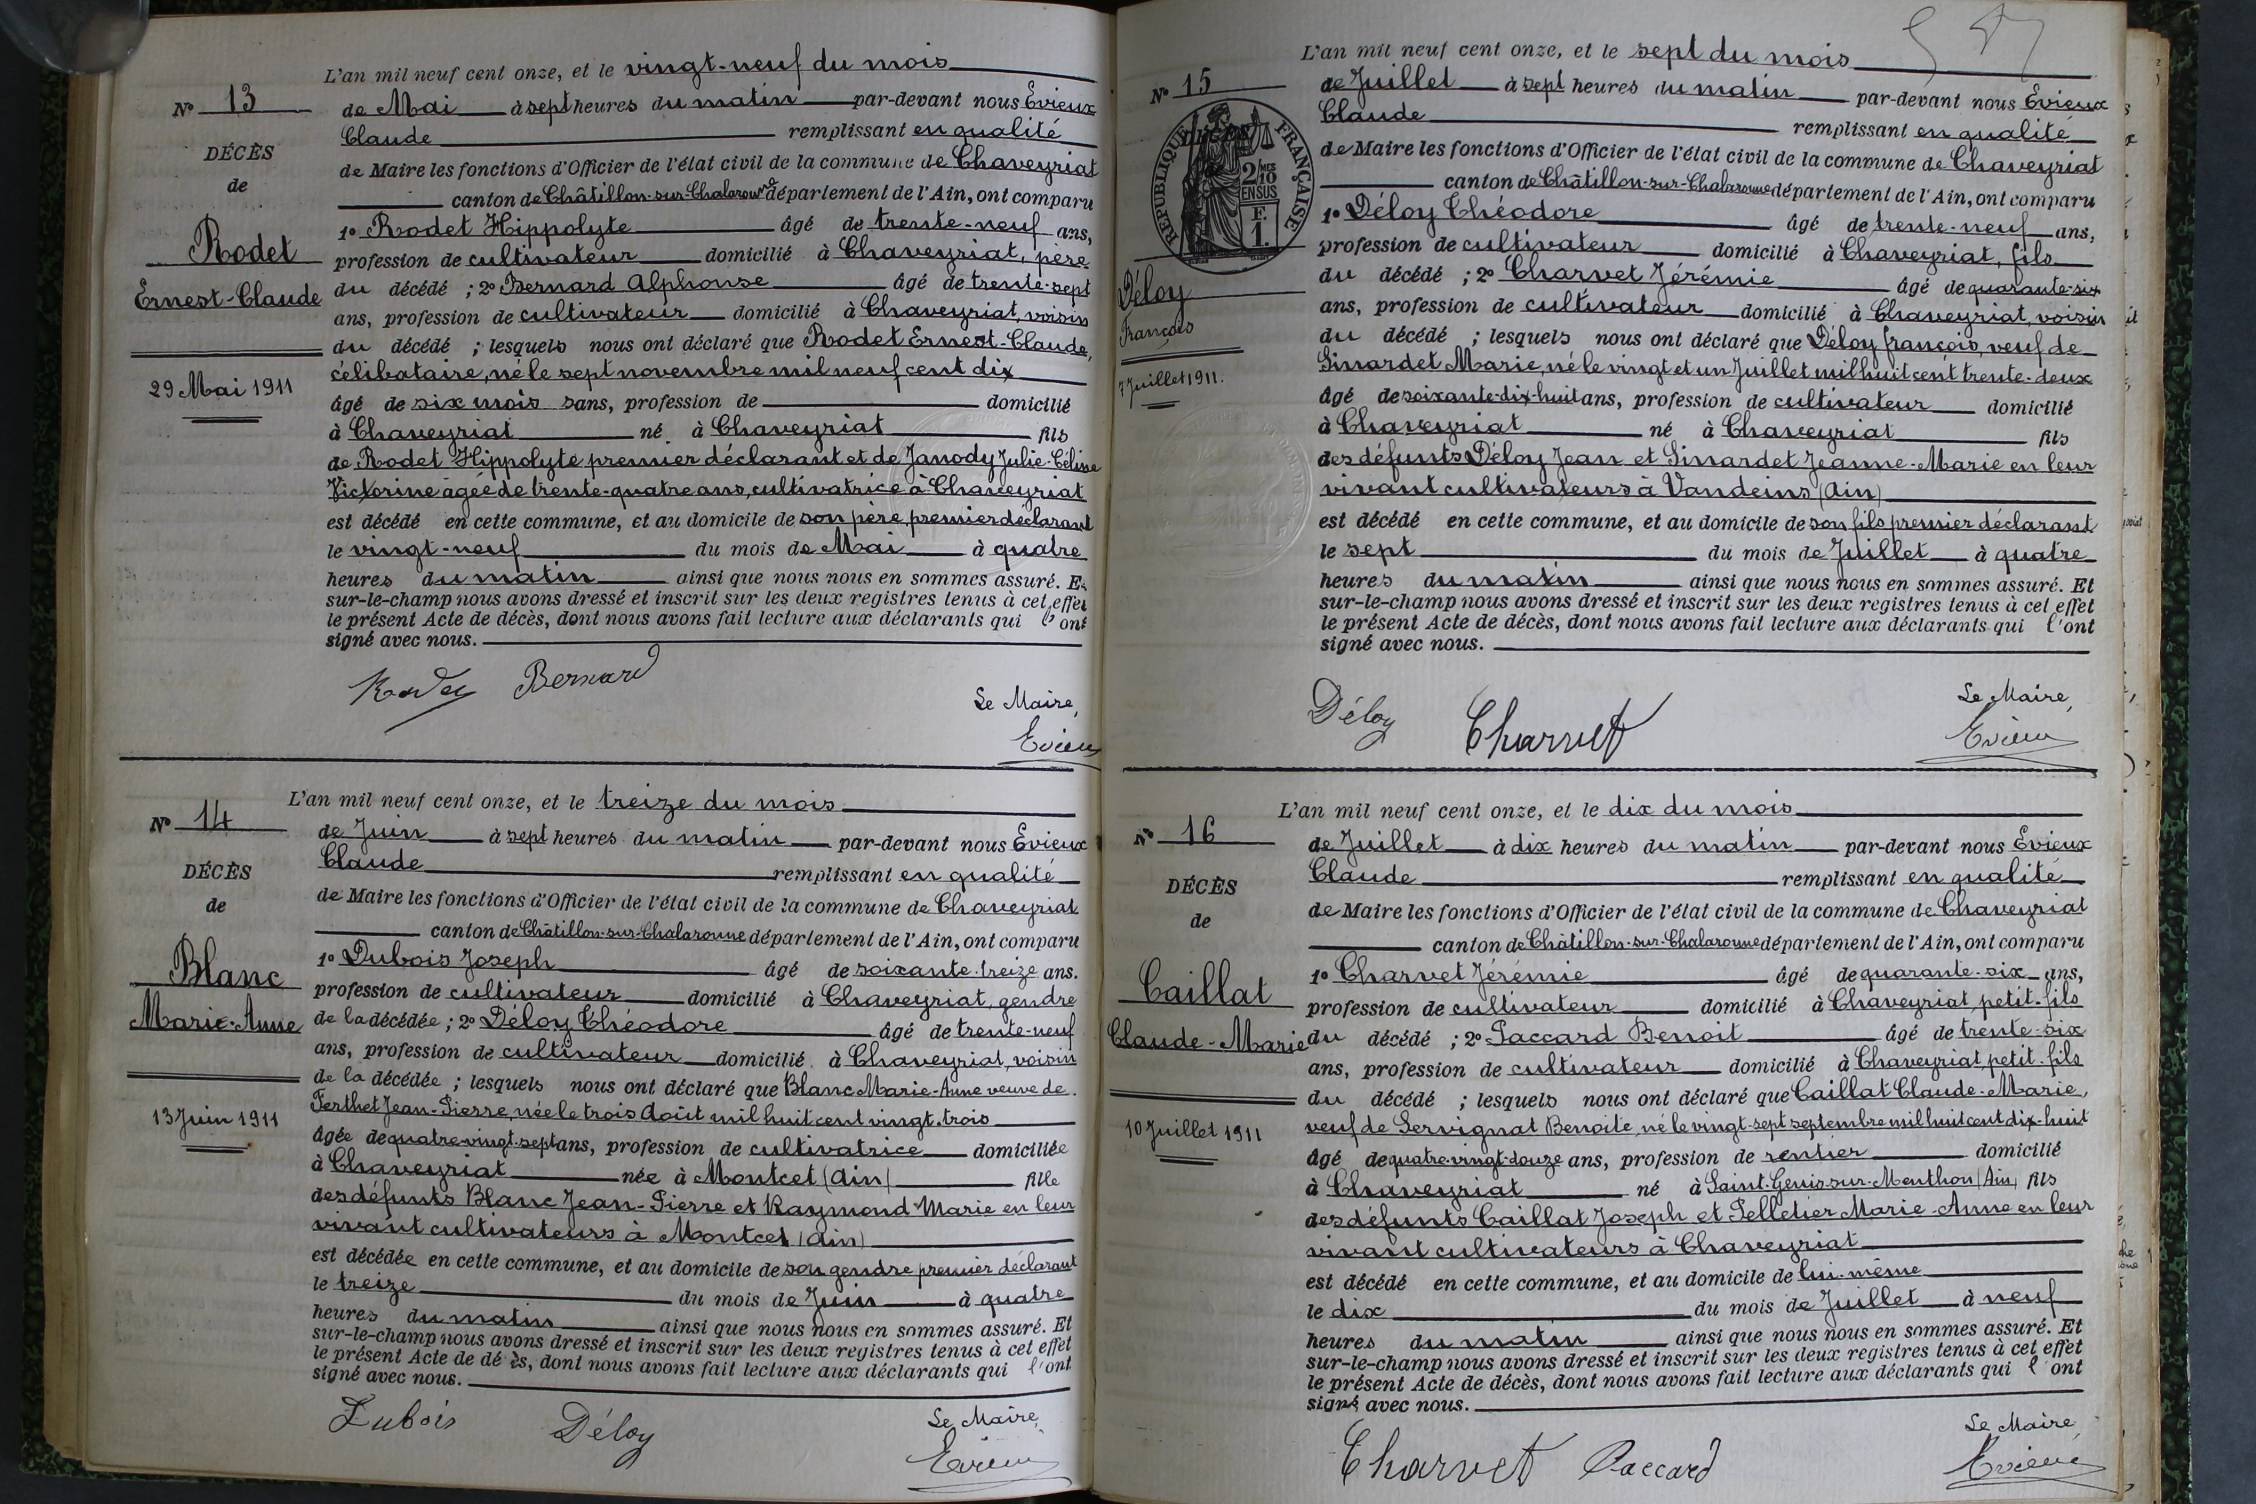 L'an mil neuf cent onze, et le vingt-neuf du mois
N° 13
de Mai à sept heures du matin par-devant nous Evieux
Claude remplissant en qualité
DÉCÈS
de Maire les fonctions d'Officier de l'état civil de la commune de Chaveyriat
de
canton de Châtillon-sur-Chalaronne département de l'Ain, ont comparu
1° Rodet Hippolyte âgé de trente-neuf ans,
Rodet
profession de cultivateur domicilié à Chaveyriat, père
Ernest-Claude
du décédé ; 2° Bernard Alphonse âgé de trente-sept
ans, profession de cultivateur domicilié à Chaveyriat, voisin
du décédé ; lesquels nous ont déclaré que Rodet Ernest-Claude,
29 Mai 1911
célibataire, né le sept novembre mil neuf cent dix
âgé de six mois sans, profession de domicilié
à Chaveyriat né à Chaveyriat fils
de Rodet Hippolyte premier déclarant et de Janody Julie-Céline
Victorine âgée de trente-quatre ans, cultivatrice à Chaveyriat
est décédé en cette commune, et au domicile de son père, premier déclarant
le vingt-neuf du mois de Mai à quatre
heures du matin ainsi que nous nous en sommes assuré. Et
sur-le-champ nous avons dressé et inscrit sur les deux registres tenus à cet effet
le présent Acte de décès, dont nous avons fait lecture aux déclarants qui l'ont
signé avec nous.
Rodet Bernard
Le Maire,
Evieux
L'an mil neuf cent onze, et le treize du mois
N° 14
de Juin à sept heures du matin par-devant nous Evieux
Claude remplissant en qualité
DÉCÈS
de Maire les fonctions d'Officier de l'état civil de la commune de Chaveyriat
de
canton de Châtillon-sur-Chalaronne département de l'Ain, ont comparu
1° Dubois Joseph âgé de soixante-treize ans.
Blanc
profession de cultivateur domicilié à Chaveyriat, gendre
Marie-Anne
de la décédée ; 2° Déloy Théodore âgé de trente-neuf
ans, profession de cultivateur domicilié à Chaveyriat, voisin
de la décédée ; lesquels nous ont déclaré que Blanc Marie-Anne veuve de
13 Juin 1911
Perthet Jean-Pierre, née le trois Août mil huit cent vingt-trois
âgée de quatre-vingt-sept ans, profession de cultivatrice domiciliée
à Chaveyriat née à Montcet (Ain) fille
des défunts Blanc Jean-Pierre et Raymond Marie en leur
vivant cultivateurs à Montcet (Ain)
est décédée en cette commune, et au domicile de son gendre premier déclarant
le treize du mois de Juin à quatre
heures du matin ainsi que nous nous en sommes assuré. Et
sur-le-champ nous avons dressé et inscrit sur les deux registres tenus à cet effet
le présent Acte de dé ès, dont nous avons fait lecture aux déclarants qui l'ont
signé avec nous.
Dubois Déloy
Le Maire,
Evieux
L'an mil neuf cent onze, et le sept du mois
N° 15
de Juillet à sept heures du matin par-devant nous Evieux
Claude remplissant en qualité
RÉPUBLIQUE FRANÇAISE
2/10 MES
EN SUS
F.
1.
de Maire les fonctions d'Officier de l'état civil de la commune de Chaveyriat
canton de Châtillon-sur-Chalaronne département de l'Ain, ont comparu
1° Déloy Théodore âgé de trente-neuf ans,
profession de cultivateur domicilié à Chaveyriat, fils
Déloy
François
du décédé ; 2° Charvet Jérémie âgé de quarante-six
ans, profession de cultivateur domicilié à Chaveyriat, voisin
du décédé ; lesquels nous ont déclaré que Déloy françois, veuf de
7 Juillet 1911.
Sinardet Marie, né le vingt et un Juillet mil huit cent trente-deux
âgé de soixante-dix-huit ans, profession de cultivateur domicilié
à Chaveyriat né à Chaveyriat fils
des défunts Déloy Jean et Sinardet Jeanne-Marie en leur
vivant cultivateurs à Vandeins (Ain)
est décédé en cette commune, et au domicile de son fils premier déclarant
le sept du mois de Juillet à quatre
heures du matin ainsi que nous nous en sommes assuré. Et
sur-le-champ nous avons dressé et inscrit sur les deux registres tenus à cet effet
le présent Acte de décès, dont nous avons fait lecture aux déclarants qui l'ont
signé avec nous.
Déloy Charvet
Le Maire,
Evieux
L'an mil neuf cent onze, et le dix du mois
N° 16
de Juillet à dix heures du matin par-devant nous Evieux
Claude remplissant en qualité
DÉCÈS
de Maire les fonctions d'Officier de l'état civil de la commune de Chaveyriat
de
canton de Châtillon-sur-Chalaronne département de l'Ain, ont comparu
1° Charvet Jérémie âgé de quarante-six ans,
Caillat
profession de cultivateur domicilié à Chaveyriat petit-fils
Claude-Marie
du décédé ; 2° Paccard Benoit âgé de trente-six
ans, profession de cultivateur domicilié à Chaveyriat, petit-fils
du décédé ; lesquels nous ont déclaré que Caillat Claude-Marie,
10 Juillet 1911
veuf de Servignat Benoite, né le vingt-sept septembre mil huit cent dix-huit
âgé de quatre-vingt-douze ans, profession de rentier domicilié
à Chaveyriat né à Saint-Genis-sur-Menthon (Ain) fils
des défunts Caillat Joseph et Pelletier Marie-Anne en leur
vivant cultivateurs à Chaveyriat
est décédé en cette commune, et au domicile de lui-même
le dix du mois de Juillet à neuf
heures du matin ainsi que nous nous en sommes assuré. Et
sur-le-champ nous avons dressé et inscrit sur les deux registres tenus à cet effet
le présent Acte de décès, dont nous avons fait lecture aux déclarants qui l'ont
signé avec nous.
Charvet Paccard
Le Maire,
Evieux